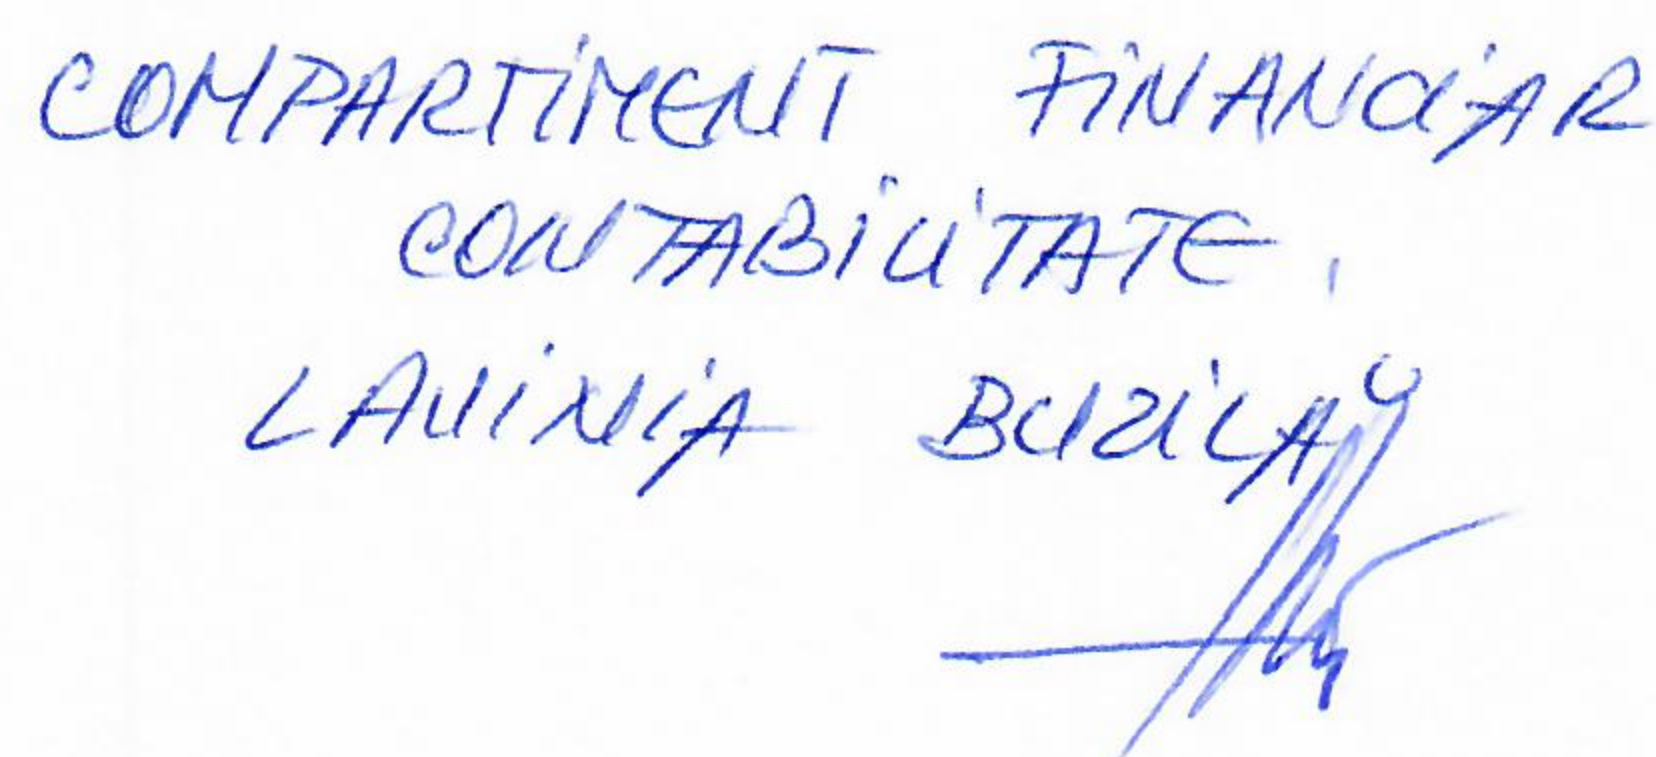 COMPARTIMENT FINANCIAR
CONTABILITATE,
LAVINIA BUZILĂ